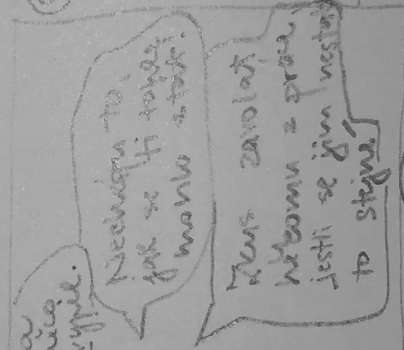 něco
vypije.
Nechápu to,
jak se ti tohle
mohlo stát!
Zkus zavolat
někomu z práce,
jestli se jim nestalo
to stejné!